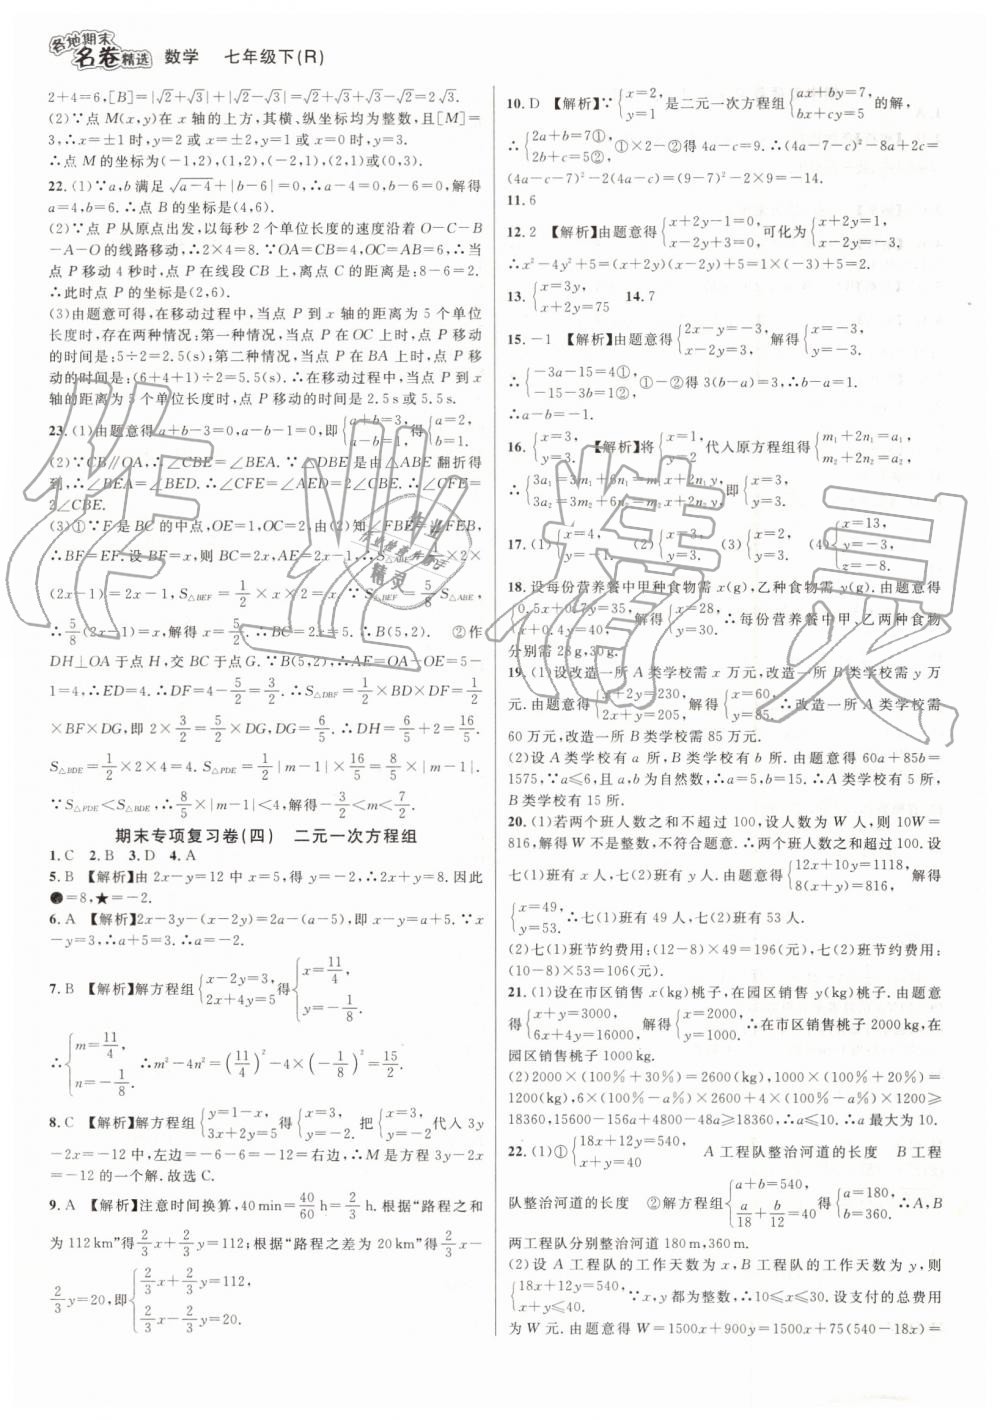 各地期末
名卷精选 数学 七年级下(R)
2+4=6,[B]=|√2+√3|+|√2-√3|=√2+√3+√3-√2=2√3.
(2)∵点M(x,y)在x轴的上方,其横、纵坐标均为整数,且[M]=
3,∴x=±1时,y=2或x=±2,y=1或x=0时,y=3.
∴点M的坐标为(-1,2),(1,2),(-2,1),(2,1)或(0,3).
22.(1)∵a,b满足√a-4+|b-6|=0,∴a-4=0,b-6=0,解得
a=4,b=6.∴点B的坐标是(4,6).
(2)∵点P从原点出发,以每秒2个单位长度的速度沿着O-C-B
-A-O的线路移动,∴2×4=8.∵OA=CB=4,OC=AB=6,∴当
点P移动4秒时,点P在线段CB上,离点C的距离是:8-6=2.
∴此时点P的坐标是(2,6).
(3)由题意可得,在移动过程中,当点P到x轴的距离为5个单位
长度时,存在两种情况:第一种情况,当点P在OC上时,点P移动
的时间是:5÷2=2.5(s);第二种情况,当点P在BA上时,点P移
动的时间是:(6+4+1)÷2=5.5(s).∴在移动过程中,当点P到x
轴的距离为5个单位长度时,点P移动的时间是2.5s或5.5s.
23.(1)由题意得a+b-3=0,a-b-1=0,即{a+b=3, a-b=1. 得{a=2, b=1.
(2)∵CB∥OA,∴∠CBE=∠BEA.∵∠DBE是由△ABE翻折得
到的,∴∠BEA=∠BED.∴∠CFE=∠CBE+∠BED.∴∠CFE=
2∠CBE.
(3)①∵F是BC的中点,OE=1,OC=2,由(2)知∠FBE=∠FEB,
∴BF=EF.设BF=x,则BC=2x,AE=2x-1.∴S△ABE=1/2×2×
(2x-1)=2x-1,S△BEF=1/2×x×2=x.∵S△BEF=5/8 S△ABE,
∴5/8(2x-1)=x,解得x=5/2.∴BC=5.∴B(5,2). ②作
DH⊥OA于点H,交BC于点G.∵B(5,2),∴AE=OA-OE=5-
1=4,∴ED=4.∴DF=4-5/2=3/2.∴S△DBF=1/2×BD×DF=1/2
×BF×DG,即2×3/2=5/2×DG,DG=6/5.∴DH=6/5+2=16/5.
S△BDE=1/2×2×4=4.S△PDE=1/2|m-1|×16/5=8/5|m-1|.
∵S△PDE<S△BDE,∴8/5×|m-1|<4,解得-3/2<m<7/2.
期末专项复习卷(四) 二元一次方程组
1.C 2.B 3.D 4.A
5.B 【解析】由2x-y=12中x=5,得y=-2,∴2x+y=8.因此
●=8,★=-2.
6.A 【解析】2x-3y-(x-2y)=2a-(a-5),即x-y=a+5.∵x
-y=3,∴a+5=3.∴a=-2.
7.B 【解析】解方程组{x-2y=3, 2x+4y=5 得{x=11/4, y=-1/8.
∴{m=11/4, n=-1/8. ∴m²-4n²=(11/4)²-4×(-1/8)²=15/2.
8.C 【解析】解方程组{y=1-x, 3x+2y=5 得{x=3, y=-2. 把{x=3, y=-2 代入3y
-2x=-12中,左边=-6-6=-12=右边,∴M是方程3y-2x
=-12的一个解.故选C.
9.A 【解析】注意时间换算,40min=40/60h=2/3h.根据“路程之和
为112km”得2/3x+2/3y=112;根据“路程之差为20km”得2/3x-
2/3y=20,即{2/3x+2/3y=112, 2/3x-2/3y=20.
10.D 【解析】∵{x=2, y=1 是二元一次方程组{ax+by=7, bx+cy=5 的解,
∴{2a+b=7①, 2b+c=5②, ①×2-②得4a-c=9.∴(4a-7-c)²-8a+2c=
(4a-c-7)²-2(4a-c)=(9-7)²-2×9=-14.
11.6
12.2 【解析】由题意得{x+2y-1=0, x-2y+3=0, 可化为{x+2y=1, x-2y=-3,
∴x²-4y²+5=(x+2y)(x-2y)+5=1×(-3)+5=2.
13.{x=3y, x+2y=75 14.7
15.-1 【解析】由题意得{2x-y=-3, x-2y=3, 解得{x=-3, y=-3.
∴{-3a-15=4①, -15-3b=1②, ①-②得3(b-a)=3,∴b-a=1.
∴a-b=-1.
16.{x=3, y=3. 【解析】将{x=1, y=2 代入原方程组得{m₁+2n₁=a₁, m₂+2n₂=a₂.
∴{3a₁=3m₁+6n₁=m₁x+2n₁y, 3a₂=3m₂+6n₂=m₂x+2n₂y, 即{x=3, y=3.
17.(1){x=4, y=3. (3){x=3, (4){x=13, z=-8.
18.设每份营养餐中甲种食物需x(g),乙种食物需y(g).由题意得
{0.5x+0.7y=35, x+0.4y=40, 解得{x=28, y=30. ∴每份营养餐中甲、乙两种食物
分别需28g,30g.
19.(1)设改造一所A类学校需x万元,改造一所B类学校需y万
元.由题意得{x+2y=230, 2x+y=205, 解得{x=60, y=85. ∴改造一所A类学校需
60万元,改造一所B类学校需85万元.
(2)设A类学校有a所,B类学校有b所.由题意得60a+85b=
1575,∵a≤6,且a为自然数,∴a=5,b=15.∴A类学校有5所,
B类学校有15所.
20.(1)若两个班人数之和不超过100,设人数为W人,则10W=
816,解得W不是整数,不符合题意.∴两个班人数之和大于100.设
七(1)班有x人,七(2)班有y人.由题意得{12x+10y=1118, 8(x+y)=816, 解得
{x=49, y=53. ∴七(1)班有49人,七(2)班有53人.
(2)七(1)班节约费用:(12-8)×49=196(元),七(2)班节约费用:
(10-8)×53=106(元).
21.(1)设在市区销售x(kg)桃子,在园区销售y(kg)桃子.由题意
得{x+y=3000, 6x+4y=16000, 解得{x=2000, y=1000. ∴在市区销售桃子2000kg,在
园区销售桃子1000kg.
(2)2000×(100%+30%)=2600(kg),1000×(100%+20%)=
1200(kg),6×(100%-a%)×2600+4×(100%-a%)×1200≥
18360,15600-156a+4800-48a≥18360,∴a≤10.∴a最大为10.
22.(1)①{18x+12y=540, x+y=40 A工程队整治河道的长度 B工程
队整治河道的长度 ②解方程组{a+b=540, a/18+b/12=40 得{a=180, b=360. ∴A,B
两工程队分别整治河道180m,360m.
(2)设A工程队的工作天数为x,B工程队的工作天数为y,则
{18x+12y=540, x+y≤40. ∵x,y都为整数,∴10≤x≤30.设支付的总费用
为W元.由题意得W=1500x+900y=1500x+75(540-18x)=